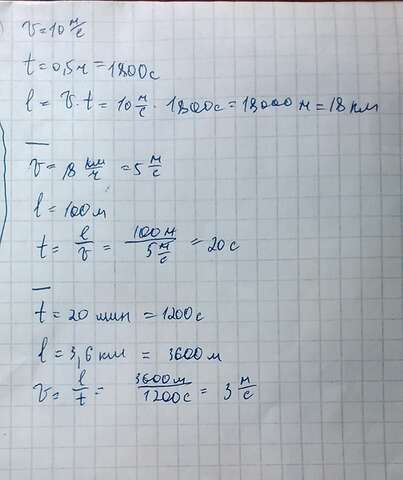 v = 10 м/с
t = 0,5 ч = 1800 с
l = v · t = 10 м/с · 1800 с = 18000 м = 18 км
v = 18 км/ч = 5 м/с
l = 100 м
t = l/v = 100 м / 5 м/с = 20 с
t = 20 мин = 1200 с
l = 3,6 км = 3600 м
v = l/t = 3600 м / 1200 с = 3 м/с